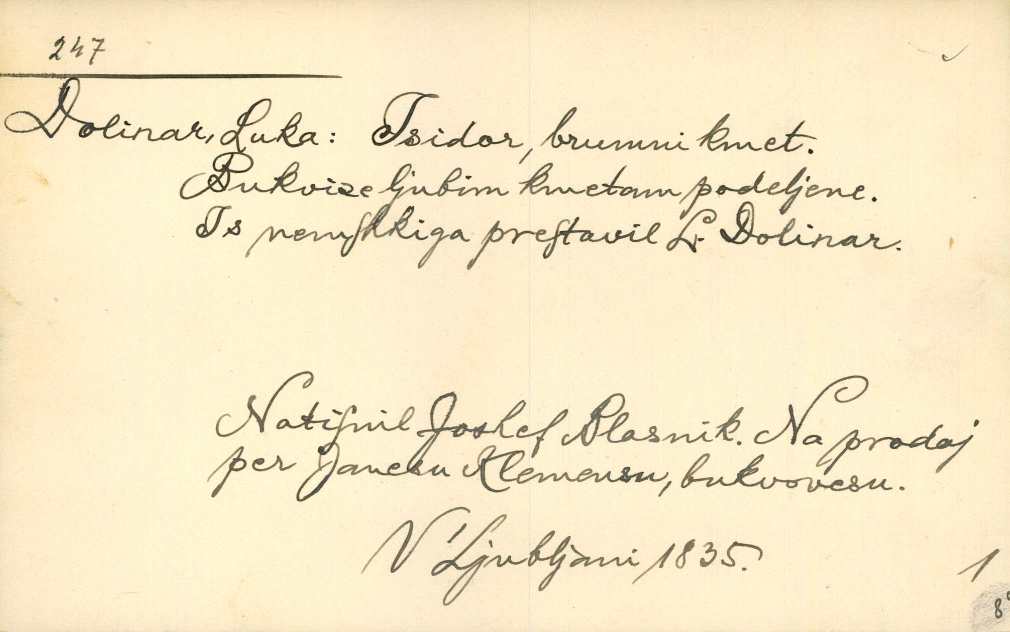 247
Dolinar, Luka: Isidor, brumni kmet.
Bukvize ljubim kmetam podeljene.
Is nemſhkiga preſtavil L. Dolinar.
Natiſnil Joshef Blasnik. Na prodaj
per Janesu Klemensu, bukvovesu.
V' Ljubljani 1835.
1
8°